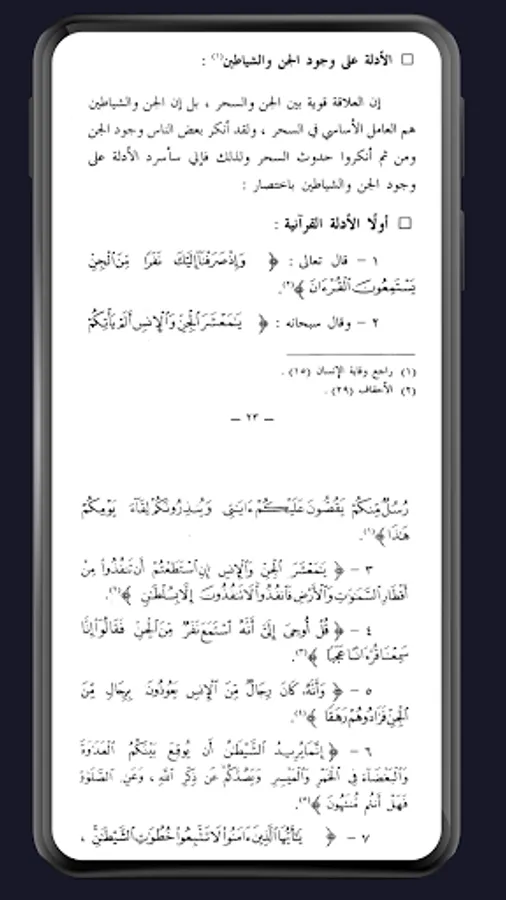 □ الأدلة على وجود الجن والشياطين(١) :
إن العلاقة قوية بين الجن والسحر ، بل إن الجن والشياطين
هم العامل الأساسي في السحر ، ولقد أنكر بعض الناس وجود الجن
ومن ثم أنكروا حدوث السحر ولذلك فإني سأسرد الأدلة على
وجود الجن والشياطين باختصار :
□ أولًا الأدلة القرآنية :
١ – قال تعالى : ﴿ وَإِذْ صَرَفْنَا إِلَيْكَ نَفَرًا مِّنَ الْجِنِّ
يَسْتَمِعُونَ الْقُرْءَانَ ﴾(٢).
٢ – وقال سبحانه : ﴿ يَٰمَعْشَرَ الْجِنِّ وَالْإِنسِ أَلَمْ يَأْتِكُمْ
(١) راجع وقاية الإنسان (١٥) .
(٢) الأحقاف (٢٩) .
– ٢٣ –
رُسُلٌ مِّنكُمْ يَقُصُّونَ عَلَيْكُمْ ءَايَٰتِي وَيُنذِرُونَكُمْ لِقَآءَ يَوْمِكُمْ
هَٰذَا ﴾(١).
٣ – ﴿ يَٰمَعْشَرَ الْجِنِّ وَالْإِنسِ إِنِ اسْتَطَعْتُمْ أَن تَنفُذُوا مِنْ
أَقْطَارِ السَّمَٰوَٰتِ وَالْأَرْضِ فَانفُذُوا لَا تَنفُذُونَ إِلَّا بِسُلْطَٰنٍ ﴾(٢).
٤ – ﴿ قُلْ أُوحِيَ إِلَيَّ أَنَّهُ اسْتَمَعَ نَفَرٌ مِّنَ الْجِنِّ فَقَالُوا إِنَّا
سَمِعْنَا قُرْءَانًا عَجَبًا ﴾(٣).
٥ – ﴿ وَأَنَّهُ كَانَ رِجَالٌ مِّنَ الْإِنسِ يَعُوذُونَ بِرِجَالٍ مِّنَ
الْجِنِّ فَزَادُوهُمْ رَهَقًا ﴾(٤).
٦ – ﴿ إِنَّمَا يُرِيدُ الشَّيْطَٰنُ أَن يُوقِعَ بَيْنَكُمُ الْعَدَٰوَةَ
وَالْبَغْضَآءَ فِي الْخَمْرِ وَالْمَيْسِرِ وَيَصُدَّكُمْ عَن ذِكْرِ اللَّهِ ، وَعَنِ الصَّلَوٰةِ
فَهَلْ أَنتُم مُّنتَهُونَ ﴾(٥).
٧ – ﴿ يَٰٓأَيُّهَا الَّذِينَ ءَامَنُوا لَا تَتَّبِعُوا خُطُوَٰتِ الشَّيْطَٰنِ ،